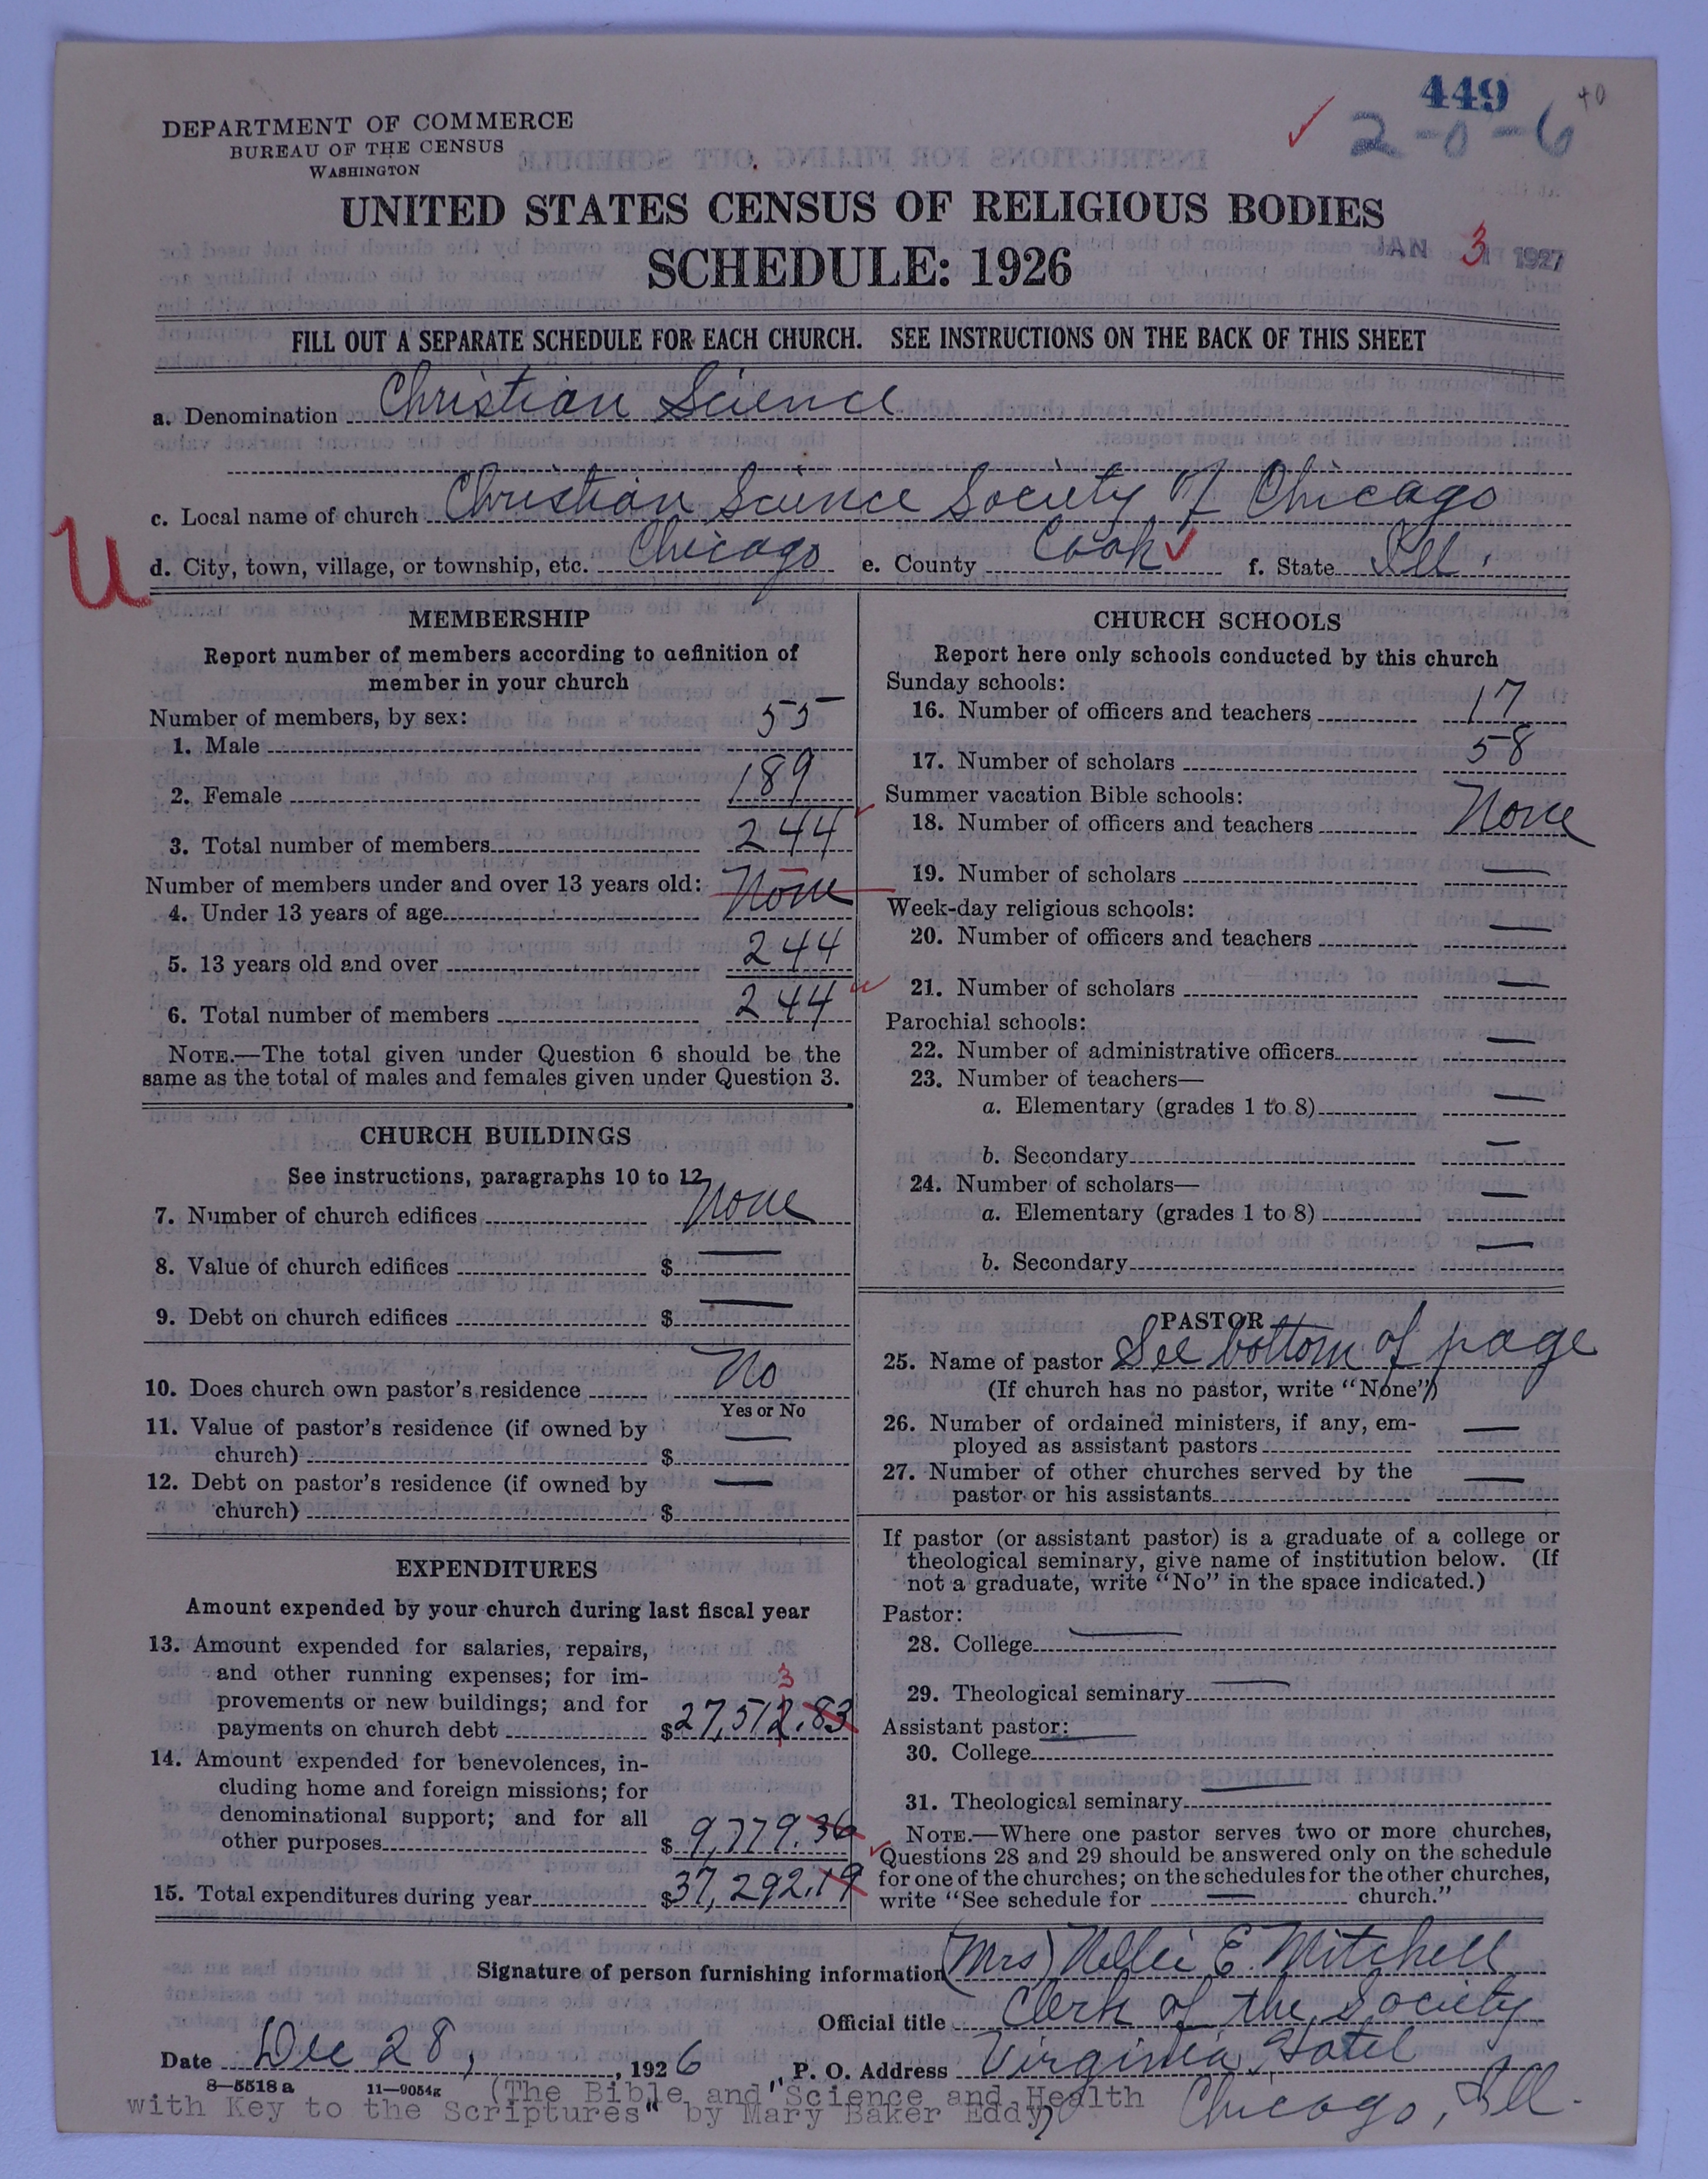 449
2-0-6
DEPARTMENT OF COMMERCE
BUREAU OF THE CENSUS
WASHINGTON
UNITED STATES CENSUS OF RELIGIOUS BODIES
SCHEDULE: 1926
JAN 3 1927
FILL OUT A SEPARATE SCHEDULE FOR EACH CHURCH. SEE INSTRUCTIONS ON THE BACK OF THIS SHEET
a. Denomination Christian Science
c. Local name of church Christian Science Society of Chicago
U
d. City, town, village, or township, etc. Chicago e. County Cook f. State Ill.
MEMBERSHIP
Report number of members according to definition of
member in your church
Number of members, by sex:
1. Male 55
2. Female 189
3. Total number of members 244
Number of members under and over 13 years old:
4. Under 13 years of age None
5. 13 years old and over 244
6. Total number of members 244
NOTE.—The total given under Question 6 should be the
same as the total of males and females given under Question 3.
CHURCH BUILDINGS
See instructions, paragraphs 10 to 12
7. Number of church edifices None
8. Value of church edifices $ —
9. Debt on church edifices $ —
10. Does church own pastor's residence No
Yes or No
11. Value of pastor's residence (if owned by
church) $ —
12. Debt on pastor's residence (if owned by
church) $ —
EXPENDITURES
Amount expended by your church during last fiscal year
13. Amount expended for salaries, repairs,
and other running expenses; for im-
3
provements or new buildings; and for
payments on church debt $27,512.83
14. Amount expended for benevolences, in-
cluding home and foreign missions; for
denominational support; and for all
other purposes $ 9,779.36
15. Total expenditures during year $37,292.19
CHURCH SCHOOLS
Report here only schools conducted by this church
Sunday schools:
16. Number of officers and teachers 17
17. Number of scholars 58
Summer vacation Bible schools:
18. Number of officers and teachers None
19. Number of scholars —
Week-day religious schools:
20. Number of officers and teachers —
21. Number of scholars —
Parochial schools:
22. Number of administrative officers —
23. Number of teachers—
a. Elementary (grades 1 to 8) —
b. Secondary —
24. Number of scholars—
a. Elementary (grades 1 to 8) —
b. Secondary —
PASTOR
25. Name of pastor See bottom of page
(If church has no pastor, write "None")
26. Number of ordained ministers, if any, em-
ployed as assistant pastors —
27. Number of other churches served by the
pastor or his assistants —
If pastor (or assistant pastor) is a graduate of a college or
theological seminary, give name of institution below. (If
not a graduate, write "No" in the space indicated.)
Pastor:
28. College —
29. Theological seminary —
Assistant pastor: —
30. College
31. Theological seminary —
NOTE.—Where one pastor serves two or more churches,
Questions 28 and 29 should be answered only on the schedule
for one of the churches; on the schedules for the other churches,
write "See schedule for — church."
Signature of person furnishing information (Mrs) Nellie E. Mitchell
Official title Clerk of the Society
Date Dec 28, 1926 P. O. Address Virginia Hotel
8—5518 a 11—9054g
Chicago, Ill.
(The Bible and "Science and Health
with Key to the Scriptures" by Mary Baker Eddy)